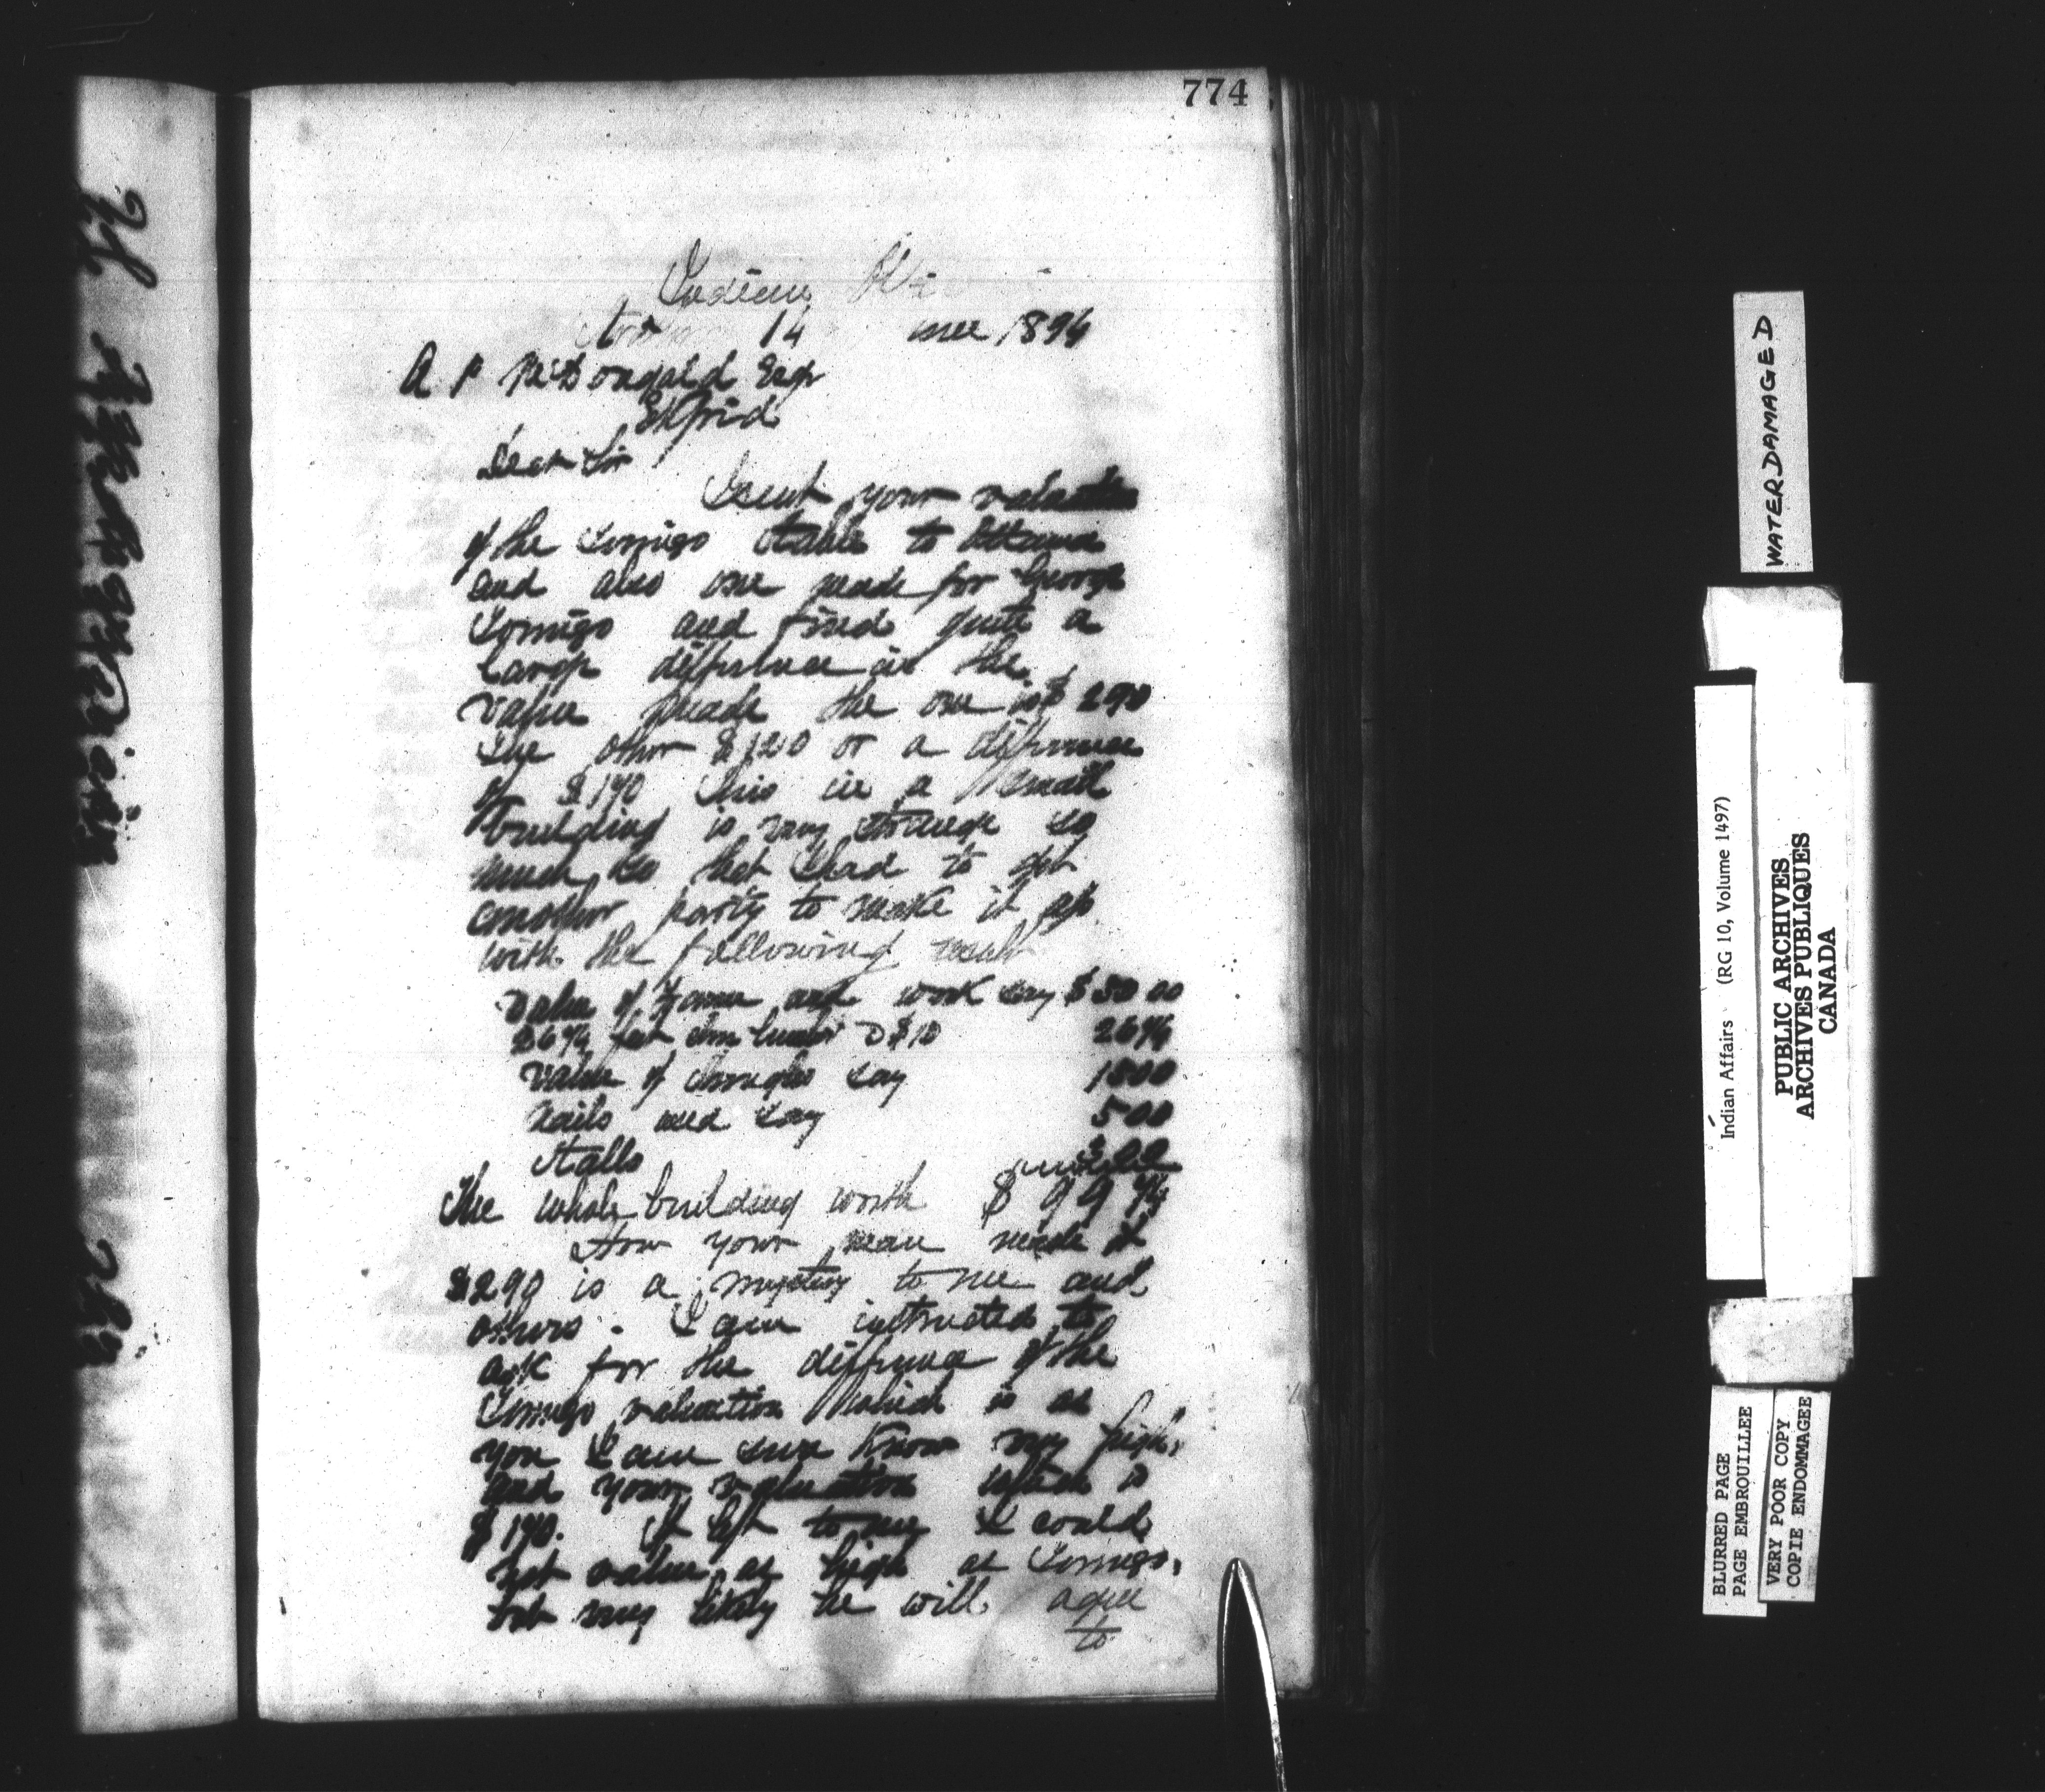 774
Indian
14 1896
A P McDougald Esqr
Ekfrid
Dear Sir
I sent your valuation
of the Tomigo stable to Ottawa
and also one made for George
Tomigo and find quite a
large difference in the
value made the one is $ 290
the other $120 or a difference
of $170 this in a small
building is very strange so
much so that I had to get
another party to make it up
with the following result
Value of frame and work say $ 50 00
feet lumber $10
Value of shingles say 18 00
Nails used say 5 00
Stalls
The whole building worth $
How your man made it
$290 is a mystery to me and
others. I am instructed to
ask for the difference of the
Tomigo valuation which is as
you I am sure know very high,
and your valuation which is
$170. If left to me I could
not value as high as Tomigo,
but very likely he will agree
to
WATER DAMAGED
Indian Affairs (RG 10, Volume 1497)
PUBLIC ARCHIVES
ARCHIVES PUBLIQUES
CANADA
BLURRED PAGE
PAGE EMBROUILLEE
VERY POOR COPY
COPIE ENDOMMAGEE